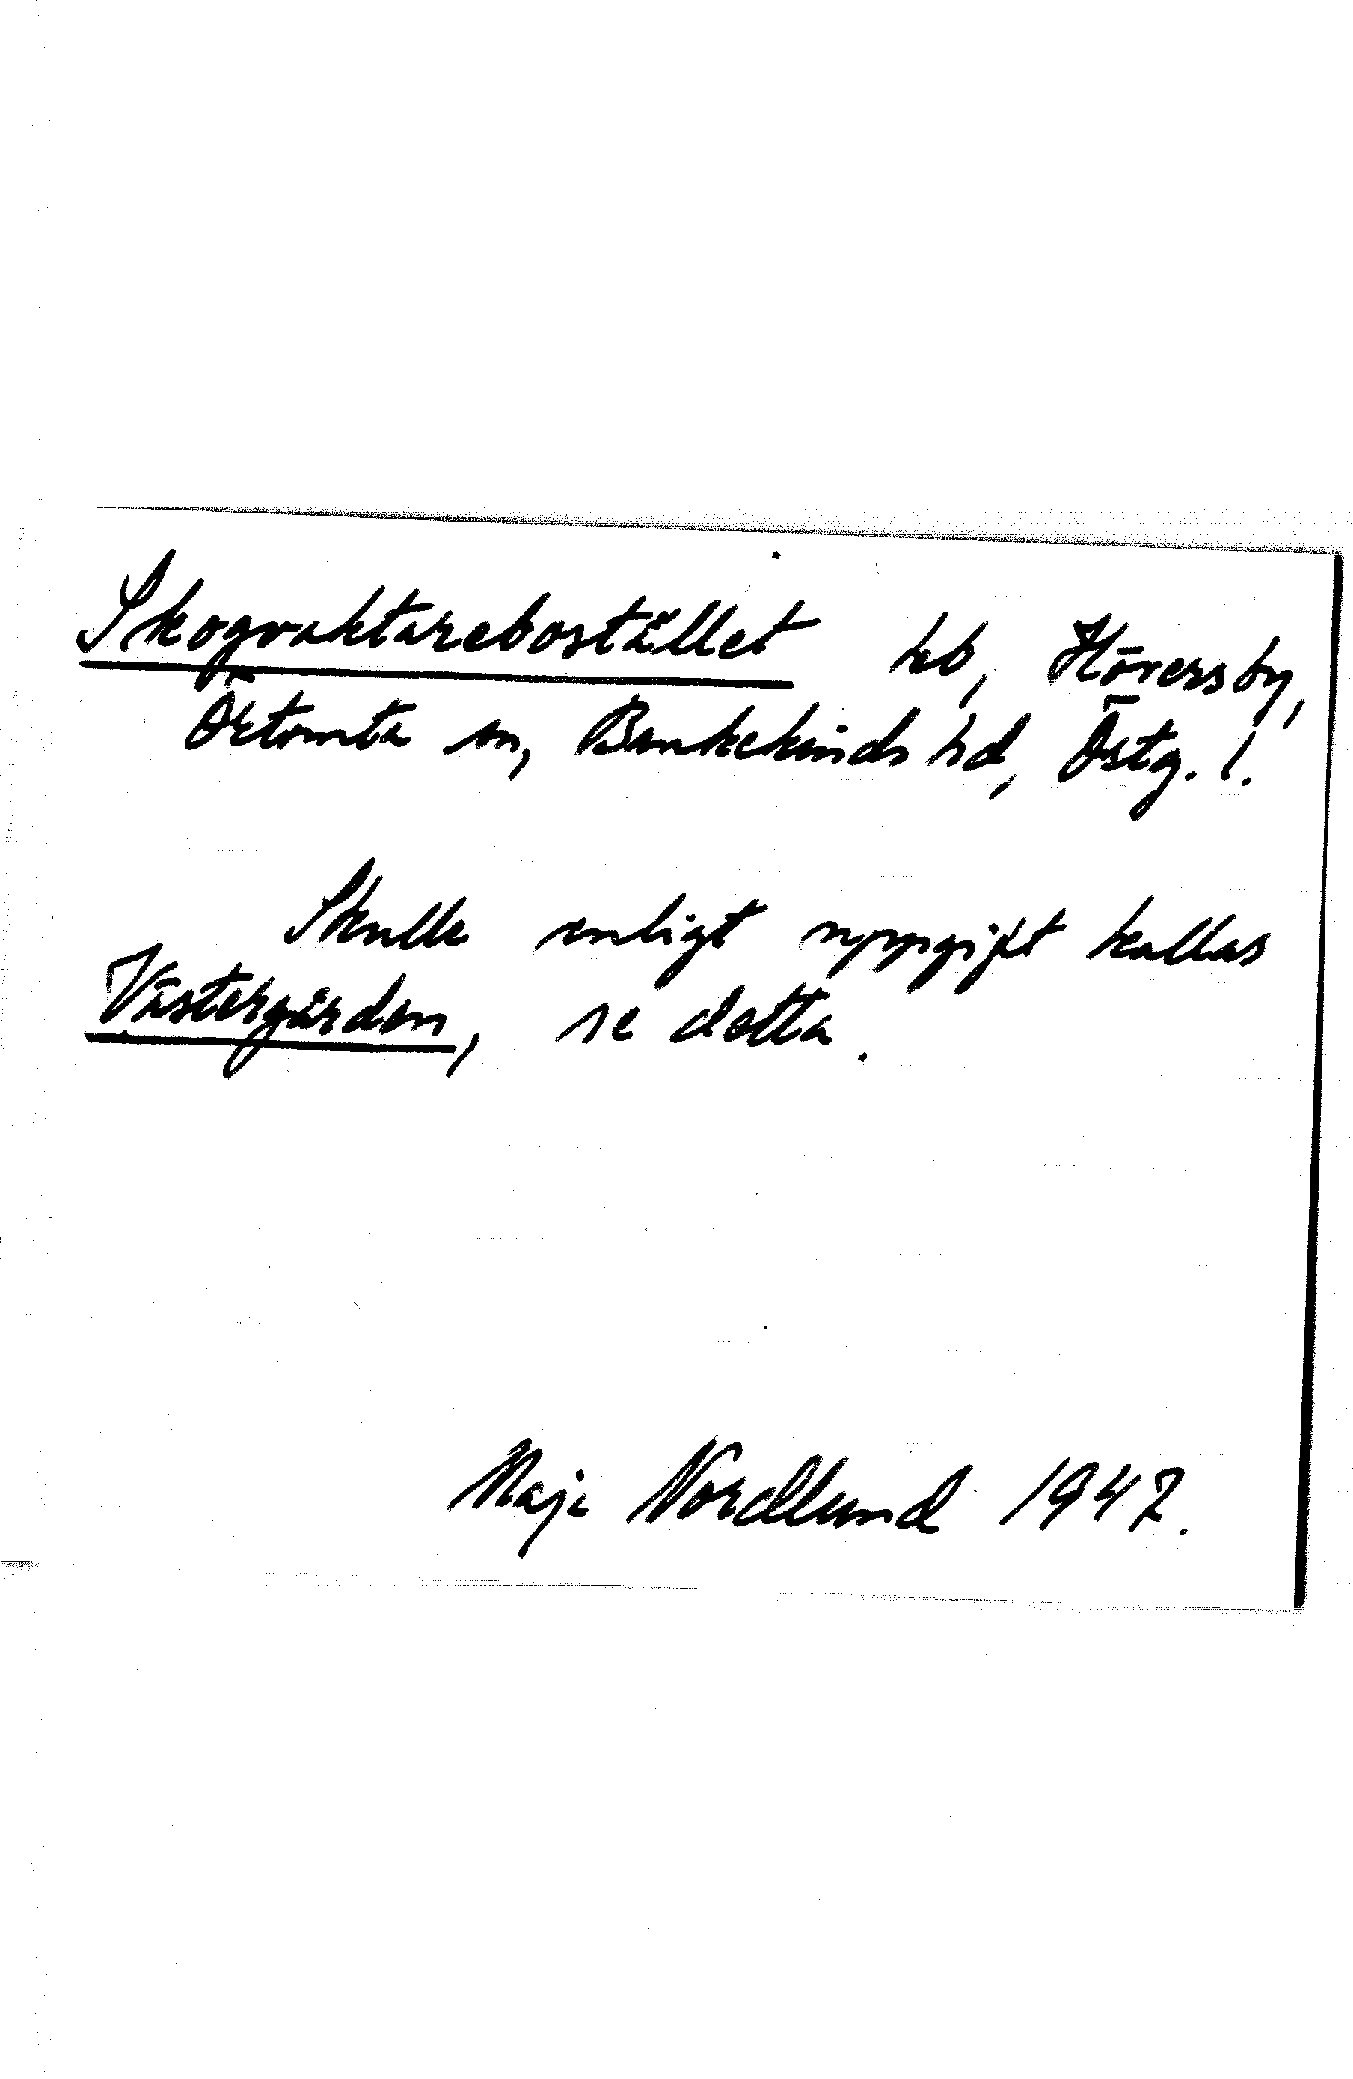 Skogvaktarebostället hb, Höversby,
Örtomta sn, Bankekinds hd, Östg. l.
Skulle enligt uppgift kallas
Västergården, se detta.
Maja Nordlund 1947.